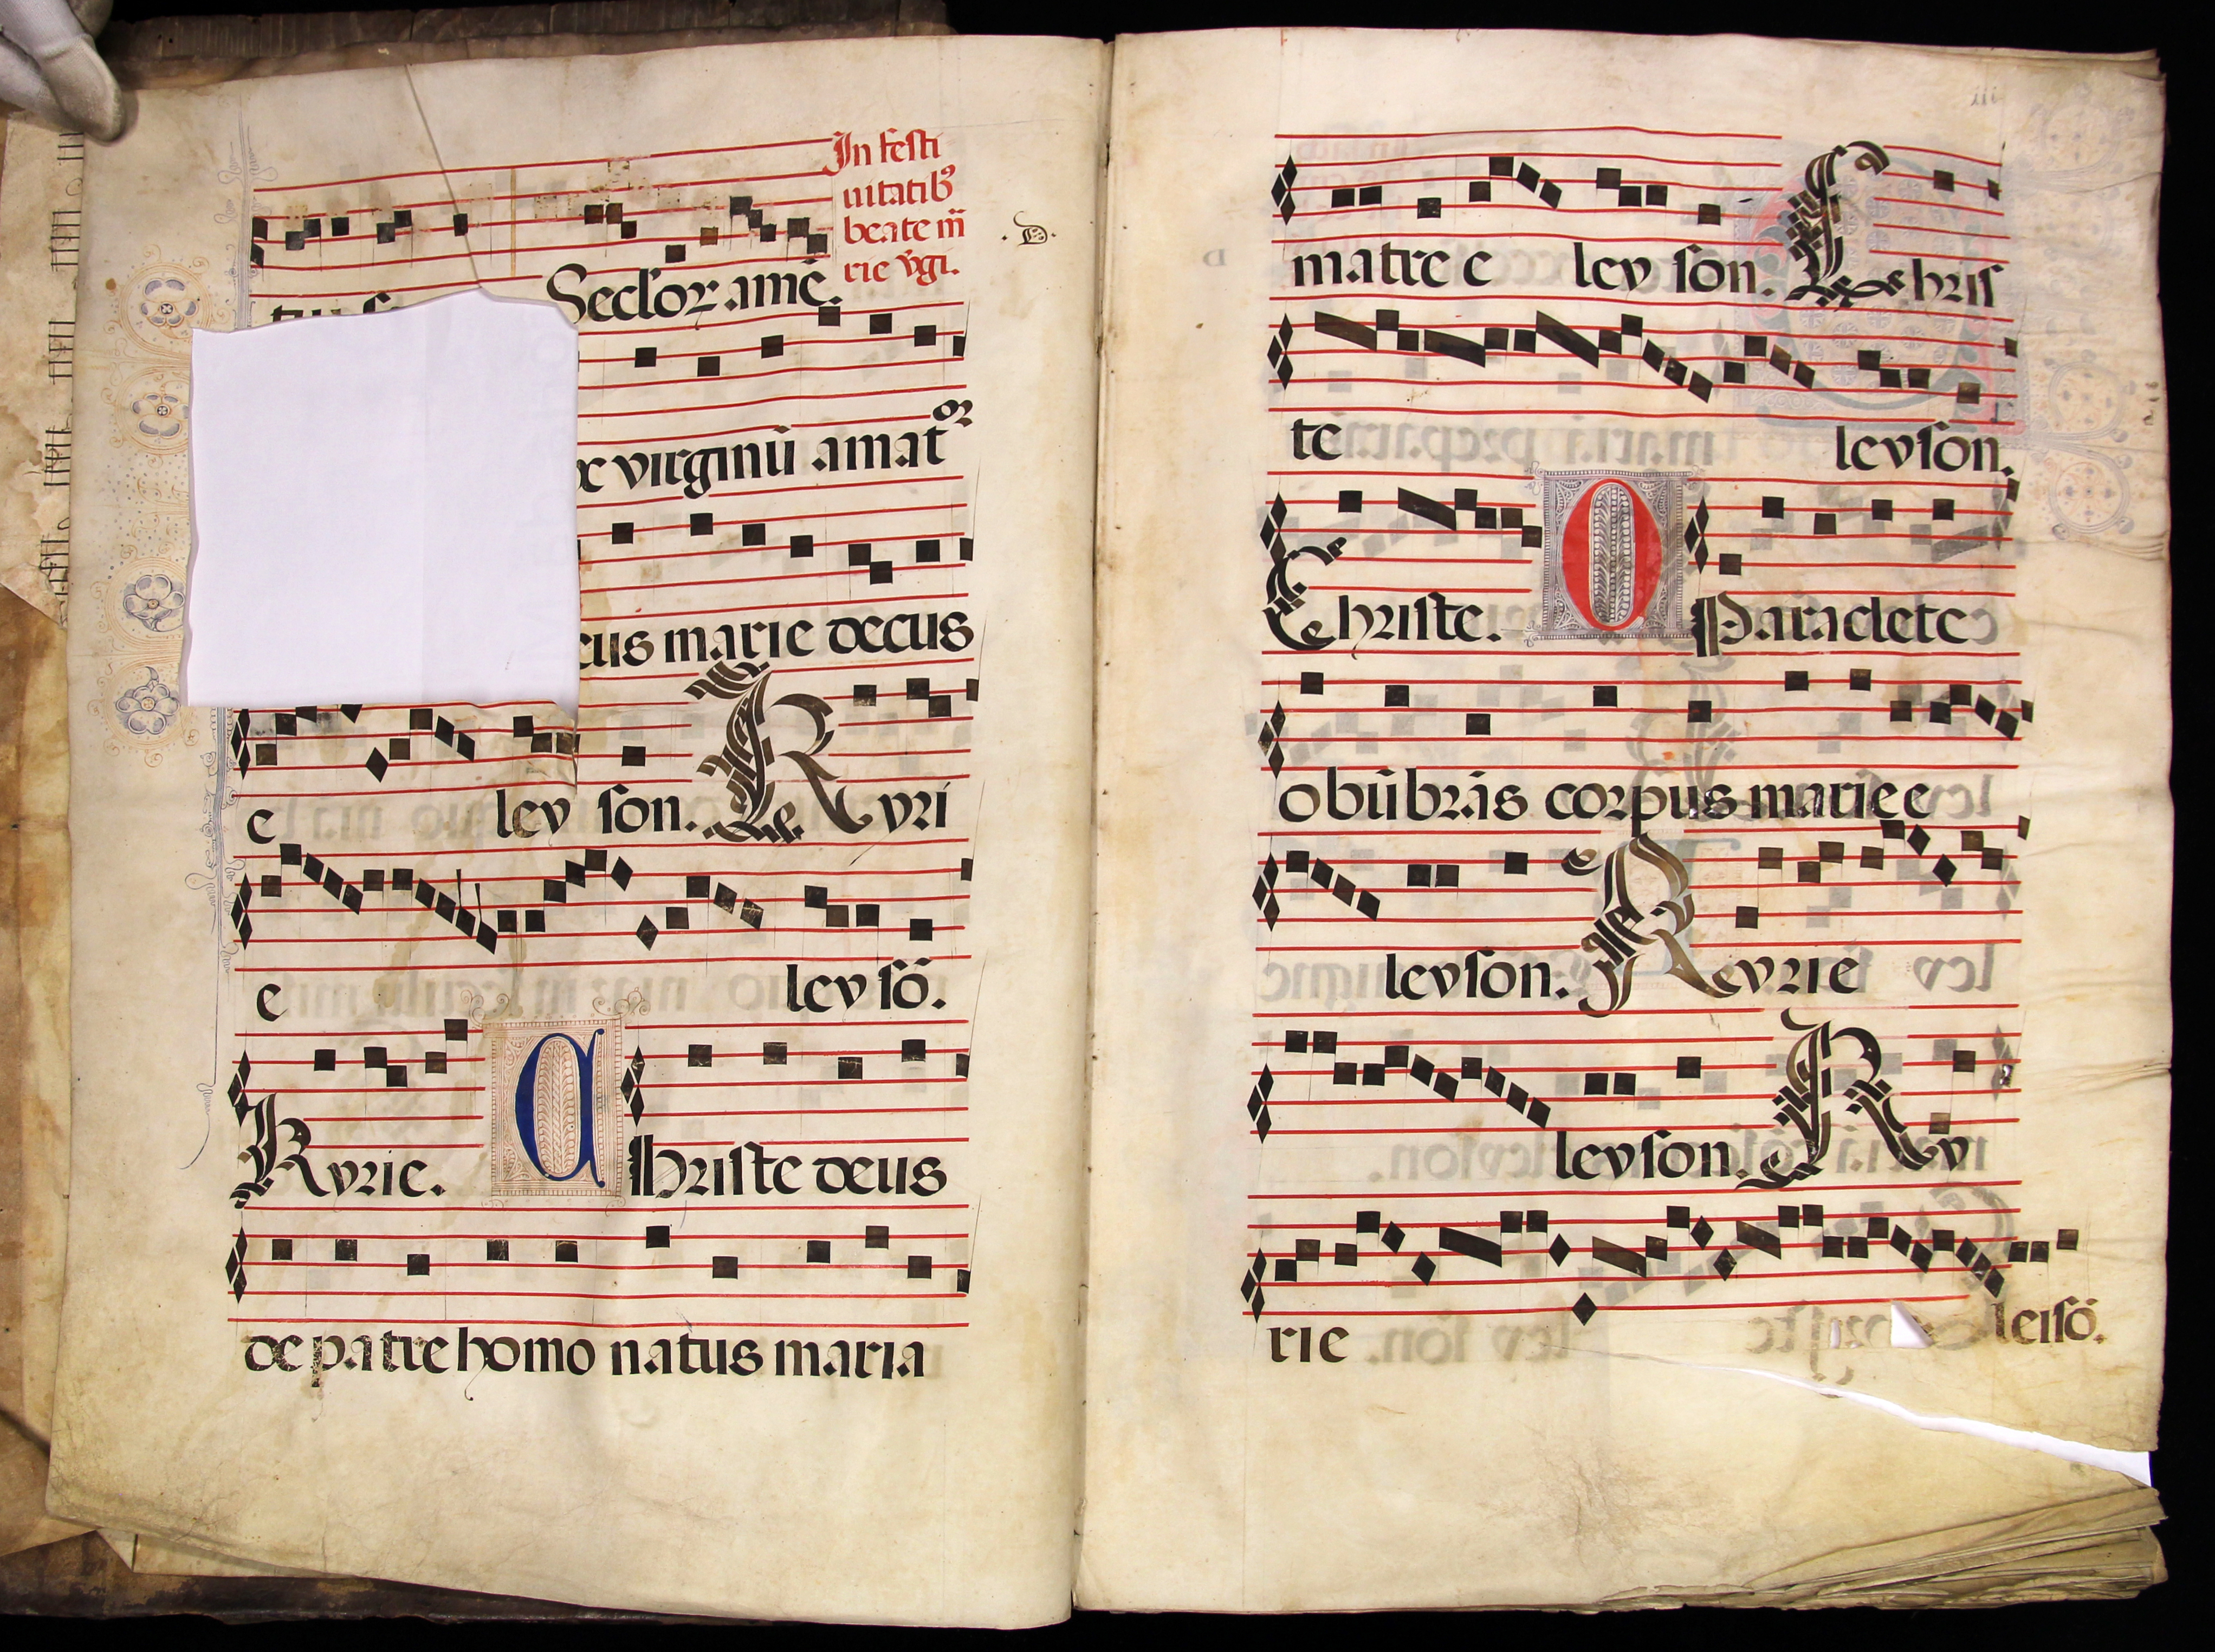 In festi
uitatibꝰ
beate m̄
rie v̄gi.
.D.
Seclorꝝ amē.
virginū amatꝰꝛ
cus marie decus
e leyson. Kyri
e leysō.
Kyrie. Christe deus
de patre homo natus maria
matre e leyson. Chris
te leyson.
Christe. O Paraclete
obūbrās corpus marie e
leyson. Kyrie
leyson. Ky
rie leisō.